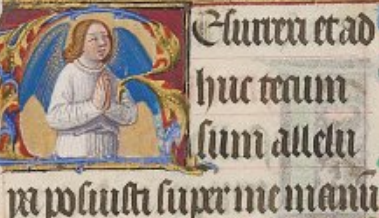 Esurrexi et ad
huc tecum
sum allelu
ya posuisti super me manū